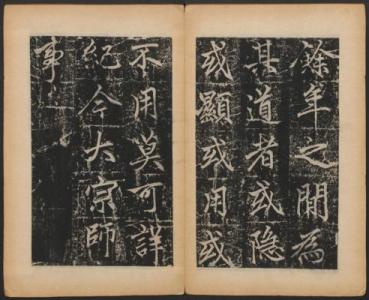 餘年之間為
其道者或隱
或顯或用或
不用莫可詳
紀今大宗師
事